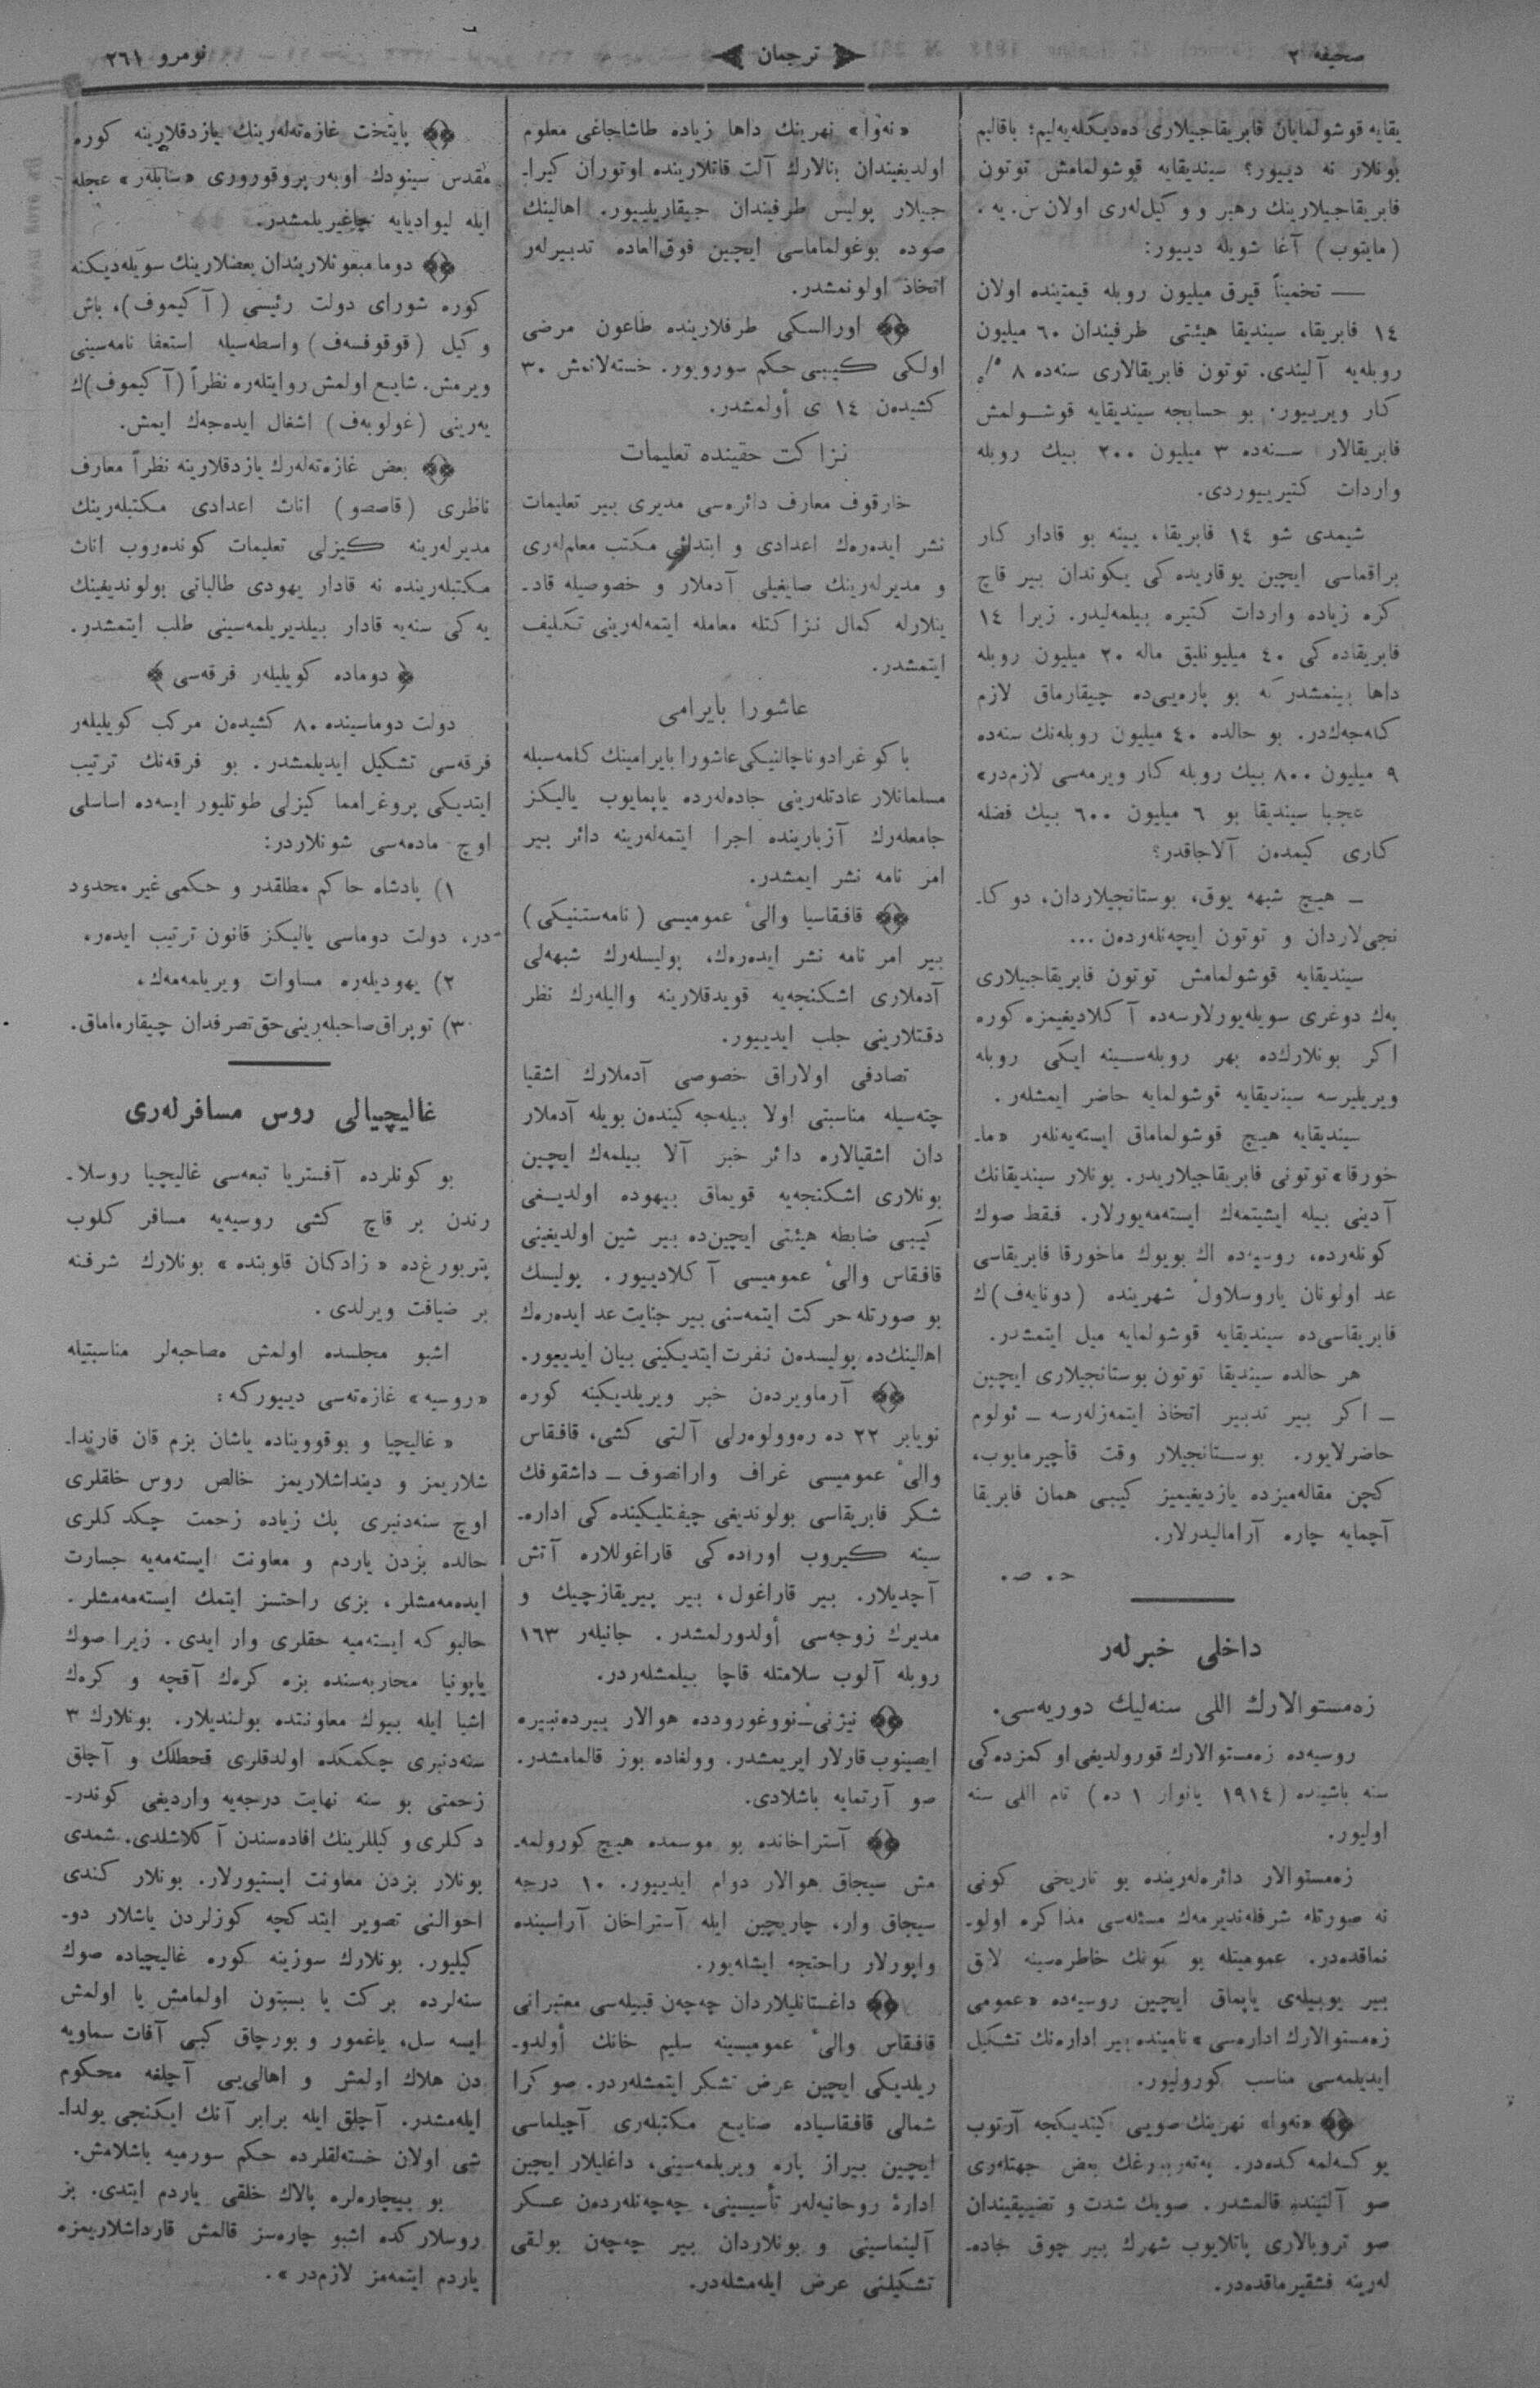 صحیفه ٢
ترجمان
نومرو ٢٦١
یقایه قوشولمایان فابریقاجیلاری ده‌دیکله‌یه‌لیم؛ باقالیم
بونلار نه دیییور؟ سیندیقایه قوشولمامش توتون
فابریقاجیلارینك رهبر و وکیل‌له‌ری اولان س. یه .
(مایتوب) آغا شویله دیییور:
— تخمیناً قیرق میلیون روبله قیمتینده اولان
١٤ فابریقا، سیندیقا هیئتی طرفیندان ٦٠ میلیون
روبله‌یه آلیندی. توتون فابریقالاری سنه‌ده ٨ ٪
کار ویرییور. بو حسابجه سیندیقایه قوشولمش
فابریقالار سنه‌ده ٣ میلیون ٢٠٠ بیك روبله
واردات کتیرییوردی.
شیمدی شو ١٤ فابریقا، یینه بو قادار کار
براقماسی ایچین یوقاریده‌کی یکوندان بیر قاچ
کره زیاده واردات کتیره بیلمه‌لیدر. زیرا ١٤
فابریقاده‌کی ٤٠ میلیونلیق ماله ٢٠ میلیون روبله
داها بینمشدر که بو پاره‌یی‌ده چیقارماق لازم
کله‌جه‌ك‌در. بو حالده ٤٠ میلیون روبله‌نك سنه‌ده
٩ میلیون ٨٠٠ بیك روبله کار ویرمه‌سی لازم‌در»
عجبا سیندیقا بو ٦ میلیون ٦٠٠ بیك فضله
کاری کیمدن آلاجاقدر؟
— هیچ شبهه یوق، بوستانجیلاردان، دوکا-
نجی‌لاردان و توتون ایچه‌نله‌رده‌ن...
سیندیقایه قوشولمامش توتون فابریقاجیلاری
په‌ك دوغری سویله‌یورلارسه‌ده آکلادیغیمزه کوره
اکر بونلارك‌ده بهر روبله‌سینه ایکی روبله
ویریلیرسه سیندیقایه قوشولمایه حاضر ایمشله‌ر .
سیندیقایه هیچ قوشولماماق ایسته‌یه‌نله‌ر «ما-
خورقا» توتونی فابریقاجیلاریدر. بونلار سیندیقانك
آدینی بیله ایشیتمه‌ك ایسته‌مه‌یورلار. فقط صوك
کونله‌رده، روسیه‌ده اك بویوك ماخورقا فابریقاسی
عد اولونان یاروسلاول شهرینده (دونایه‌ف)ك
فابریقاسی‌ده سیندیقایه قوشولمایه میل ایتمشدر.
هر حالده سیندیقا توتون بوستانجیلاری ایچین
— اکر بیر تدبیر اتخاذ ایتمه‌زله‌رسه — ئولوم
حاضرلایور. بوستانجیلار وقت قاچیرمایوب،
کچن مقاله‌میزده یازدیغیمیز کیبی همان فابریقا
آچمایه چاره آرامالیدرلار.
ح. ص.
داخلی خبرله‌ر
زه‌مستوالارك اللی سنه‌لیك دوریه‌سی.
روسیه‌ده زه‌مستوالارك قورولدیغی اوکمزده‌کی
سنه باشینده (١٩١٤ یانوار ١ ده) تام اللی سنه
اولیور.
زه‌مستوالار دائره‌له‌رینده بو تاریخی کونی
نه صورتله شرفله‌ندیرمه‌ك مسئله‌سی مذاکره اولو-
نماقده‌در. عمومیتله بو کونك خاطره‌سینه لایق
بیر یوبیله‌ی یاپماق ایچین روسیه‌ده «عمومی
زه‌مستوالارك اداره‌سی» نامینده بیر اداره‌نك تشکیل
ایدیلمه‌سی مناسب کورولیور.
«نه‌وا» نهرینك صویی کیتدیکجه آرتوب
یوکسه‌لمه‌کده‌در. په‌ته‌ربورغك بعض جهتله‌ری
صو آلتینده قالمشدر. صویك شدت و تضییقیندان
صو تروبالاری پاتلایوب شهرك بیر چوق جاده-
له‌رینه فشقیرماقده‌در.
«نه‌وا» نهرینك داها زیاده طاشاجاغی معلوم
اولدیغیندان بنالارك آلت قاتلارینده اوتوران کیرا-
جیلار پولیس طرفیندان چیقاریلییور. اهالینك
صوده بوغولماماسی ایچین فوق‌العاده تدبیرله‌ر
اتخاذ اولونمشدر.
اورالسکی طرفلارینده طاعون مرضی
اولکی کیبی حکم سورویور. خسته‌لانمش ٣٠
کشیدن ١٤ ی أولمشدر.
نزاکت حقینده تعلیمات
خارقوف معارف دائره‌سی مدیری بیر تعلیمات
نشر ایده‌ره‌ك اعدادی و ابتدائی مکتب معلم‌له‌ری
و مدیرله‌رینك صایغیلی آدملار و خصوصیله قاد-
ینلارله کمال نزاکتله معامله ایتمه‌له‌رینی تکلیف
ایتمشدر.
عاشورا بایرامی
باکو غرادوناچالنیکی عاشورا بایرامینك کلمه‌سیله
مسلمانلار عادتله‌رینی جاده‌له‌رده یاپمایوب یالیکز
جامعله‌رك آزبارینده اجرا ایتمه‌له‌رینه دائر بیر
امر نامه نشر ایمشدر.
قافقاسیا والیٔ عمومیسی (نامه‌ستنیکی)
بیر امر نامه نشر ایده‌ره‌ك، پولیسله‌رك شبهه‌لی
آدملاری اشکنجه‌یه قویدقلارینه والیله‌رك نظر
دقتلارینی جلب ایدییور.
تصادفی اولاراق خصوصی آدملارك اشقیا
چته‌سیله مناسبتی اولا بیله‌جه‌کیندن بویله آدملار
دان اشقیالاره دائر خبر آلا بیلمه‌ك ایچین
بونلاری اشکنجه‌یه قویماق بیهوده اولدیغی
کیبی ضابطه هیئتی ایچین‌ده بیر شین اولدیغینی
قافقاس والیٔ عمومیسی آکلادییور. پولیسك
بو صورتله حرکت ایتمه‌سنی بیر جنایت عد ایده‌ره‌ك
اهالینك‌ده پولیسدن نفرت ایتدیکینی بیان ایدییور.
آرماویردن خبر ویریلدیکینه کوره
نویابر ٢٢ ده ره‌وولوه‌رلی آلتی کشی، قافقاس
والیٔ عمومیسی غراف وارانصوف — داشقوفك
شکر فابریقاسی بولوندیغی چیفتلیکینده‌کی اداره-
سینه کیروب اوراده‌کی قاراغوللاره آتش
آچدیلار. بیر قاراغول، بیر پیریقازچیك و
مدیرك زوجه‌سی أولدورلمشدر. جانیله‌ر ١٦٣
روبله آلوب سلامتله قاچا بیلمشله‌ردر.
نیژنی—نووغورودده هوالار بیردنبیره
ایصینوب قارلار ایریمشدر. وولغاده بوز قالمامشدر.
صو آرتمایه باشلادی.
آستراخانده بو موسمده هیچ کورولمه-
مش سیجاق هوالار دوام ایدییور. ١٠ درجه
سیجاق وار، چاریچین ایله آستراخان آراسینده
واپورلار راحتجه ایشله‌یور.
داغستانلیلاردان چه‌چه‌ن قبیله‌سی معتبرانی
قافقاس والیٔ عمومیسینه سلیم خانك أولدو-
ریلدیکی ایچین عرض تشکر ایتمشله‌ردر. صوکرا
شمالی قافقاسیاده صنایع مکتبله‌ری آچیلماسی
ایچین بیراز پاره ویریلمه‌سینی، داغلیلار ایچین
ادارۀ روحانیه‌له‌ر تأسیسینی، چه‌چه‌نله‌ردن عسکر
آلینماسینی و بونلاردان بیر چه‌چه‌ن پولقی
تشکیلنی عرض ایله‌مشله‌در.
پایتخت غازه‌ته‌له‌رینك یازدقلارینه کوره
مقدس سینودك اوبه‌ر پروقوروری «سابله‌ر» عجله
ایله لیوادیایه چاغیریلمشدر.
دوما مبعوثلاریندان بعضلارینك سویله‌دیکنه
کوره شورای دولت رئیسی (آکیموف)، باش
وکیل (قوقوفسه‌ف) واسطه‌سیله استعفا نامه‌سینی
ویرمش. شایع اولمش روایتله‌ره نظراً (آکیموف)ك
یه‌رینی (غولوبه‌ف) اشغال ایده‌جه‌ك ایمش.
بعض غازه‌ته‌له‌رك یازدقلارینه نظراً معارف
ناظری (قاصصو) اناث اعدادی مکتبله‌رینك
مدیرله‌رینه کیزلی تعلیمات کونده‌روب اناث
مکتبله‌رینده نه قادار یهودی طالباتی بولوندیغینك
یه‌کی سنه‌یه قادار بیلدیریلمه‌سینی طلب ایتمشدر.
﴿دوماده کویلیله‌ر فرقه‌سی﴾
دولت دوماسینده ٨٠ کشیدن مرکب کویلیله‌ر
فرقه‌سی تشکیل ایدیلمشدر. بو فرقه‌نك ترتیب
ایتدیکی پروغرامما کیزلی طوتلیور ایسه‌ده اساسلی
اوچ ماده‌سی شونلاردر:
١) پادشاه حاکم مطلقدر و حکمی غیر محدود
در، دولت دوماسی یالیکز قانون ترتیب ایده‌ر،
٢) یهودیله‌ره مساوات ویریلمه‌مه‌ك،
٣) توپراق صاحبله‌رینی حق تصرفدان چیقارماماق.
غالیچییالی روس مسافرله‌ری
بو کونلرده آفستریا تبعه‌سی غالیچیا روسلا-
رندن بر قاچ کشی روسیه‌یه مسافر کلوب
پتربورغده «زادکان قلوبنده» بونلارك شرفنه
بر ضیافت ویرلدی .
اشبو مجلسده اولمش مصاحبه‌لر مناسبتیله
«روسیه» غازه‌ته‌سی دیییورکه:
«غالیچیا و بوقووینا‌ده یاشان بزم قان قارندا-
شلاریمز و دینداشلاریمز خالص روس خلقلری
اوچ سنه‌دنبری پك زیاده زحمت چکدکلری
حالده بزدن یاردم و معاونت ایسته‌مه‌یه جسارت
ایده‌مه‌مشلر، بزی راحتسز ایتمك ایسته‌مه‌مشلر.
حالبوکه ایسته‌میه حقلری وار ایدی. زیرا صوك
یاپونیا محاربه‌سنده بزه کرەك آقچه و کرەك
اشیا ایله بیوك معاونتده بولندیلار. بونلارك ٣
سنه‌دنبری چکمکده اولدقلری قحطلك و آچلق
زحمتی بو سنه نهایت درجه‌یه واردیغی کوندر-
دکلری وکیللرینك افاده‌سندن آکلاشلدی. شمدی
بونلار بزدن معاونت ایستیورلار. بونلار کندی
احوالنی تصویر ایتدکچه کوزلردن یاشلار دو-
کیلیور. بونلارك سوزینه کوره غالیچیاده صوك
سنه‌لرده برکت یا بسبتون اولمامش یا اولمش
ایسه سل، یاغمور و بورچاق کبی آفات سماویه
دن هلاك اولمش و اهالی‌یی آچلغه محکوم
ایله‌مشدر. آچلق ایله برابر آنك ایکنجی یولدا-
شی اولان خسته‌لقلرده حکم سورمیه باشلامش.
بو بیچاره‌لره پالاك خلقی یاردم ایتدی. بز
روسلارکده اشبو چاره‌سز قالمش قارداشلاریمزه
یاردم ایتمه‌مز لازم‌در».